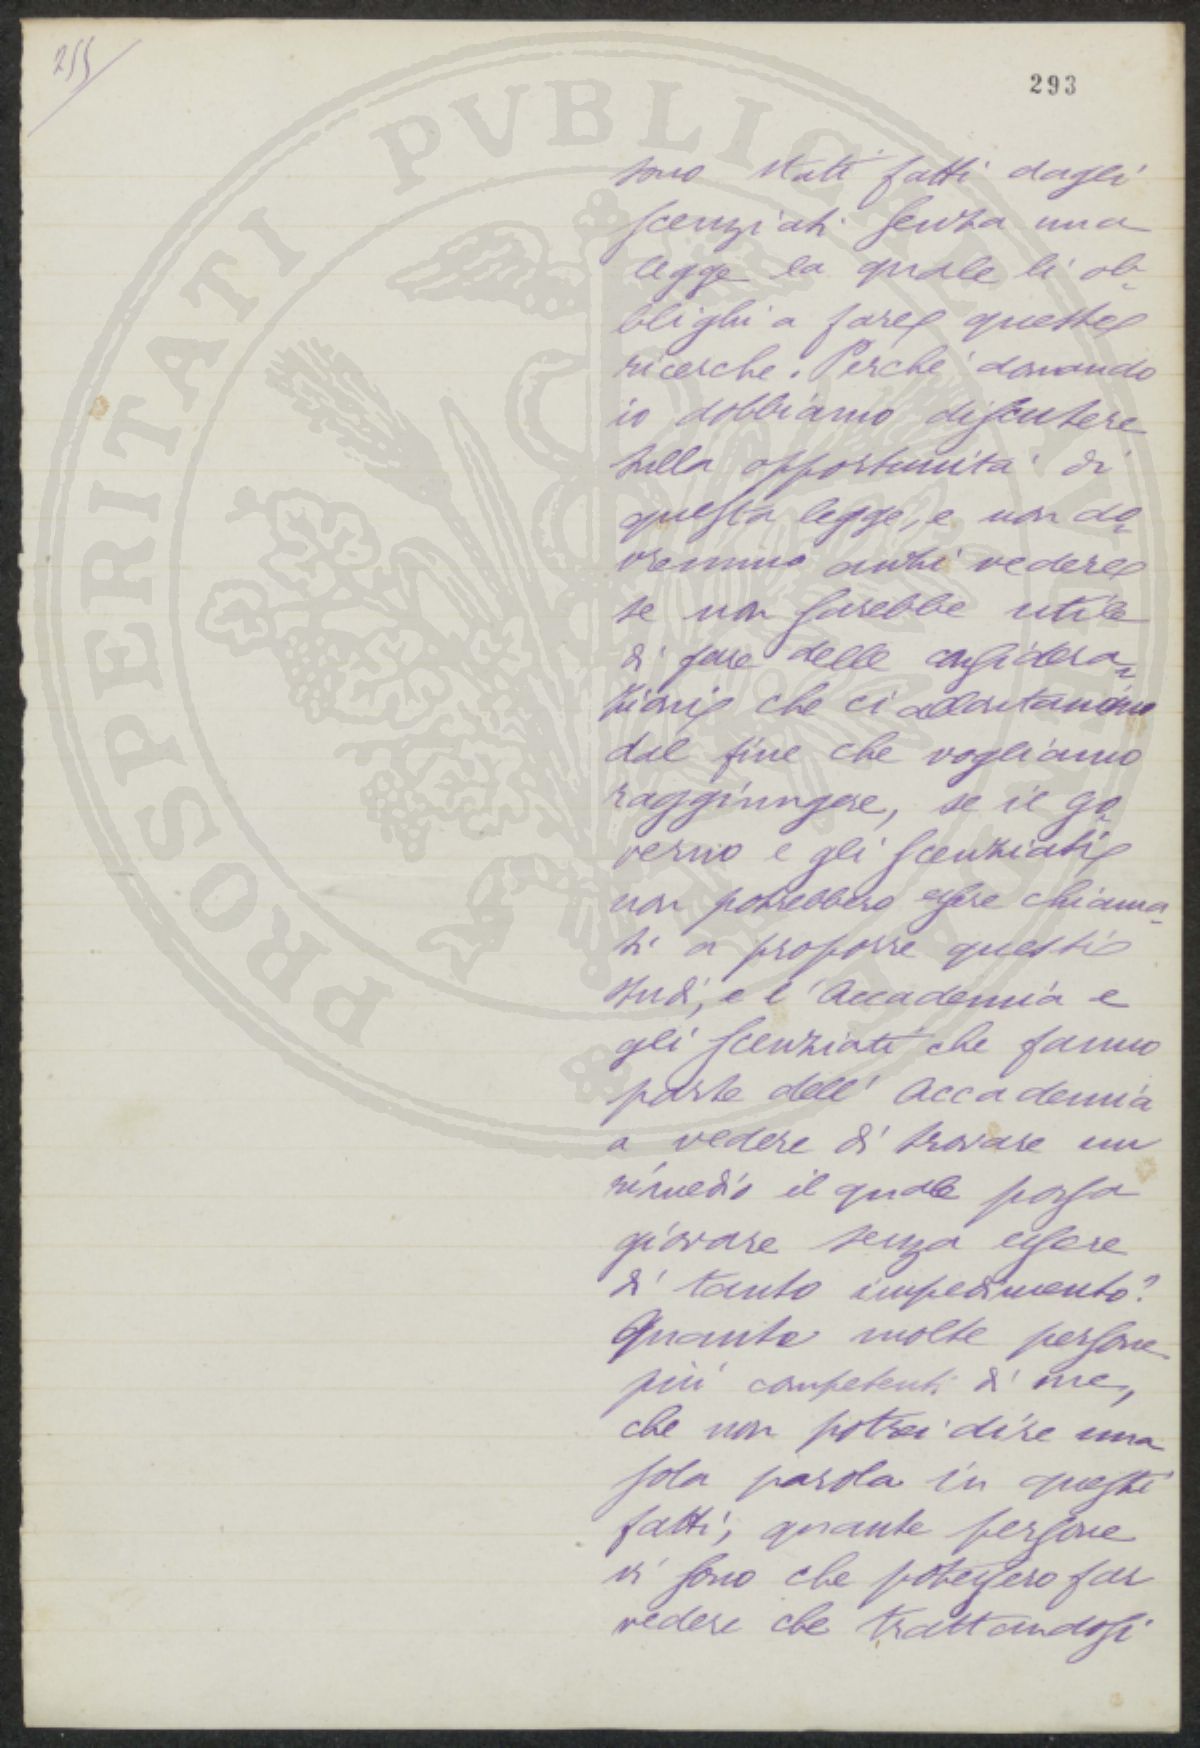 255
293
PROSPERITATI PVBLICAE AVGENDAE
sono stati fatti dagli
scenziati senza una
legge la quale li ob-
blighi a fare queste
ricerche. Perché domando
io dobbiamo discutere
sulla opportunità di
questa legge, e non do-
vremmo anzi vedere
se non sarebbe utile
di fare delle considera-
zioni che ci allontanino
dal fine che vogliamo
raggiungere, se il go-
verno e gli scenziati
non potrebbero essere chiama-
ti a proporre questi
studi, e l'Accademia e
gli scenziati che fanno
parte dell'Accademia
a vedere di trovare un
rimedio il quale possa
giovare senza essere
di tanto impedimento?
Quante molte persone
più competenti di me,
che non potrei dire una
sola parola in questi
fatti, quante persone
vi sono che potessero far
vedere che trattandosi